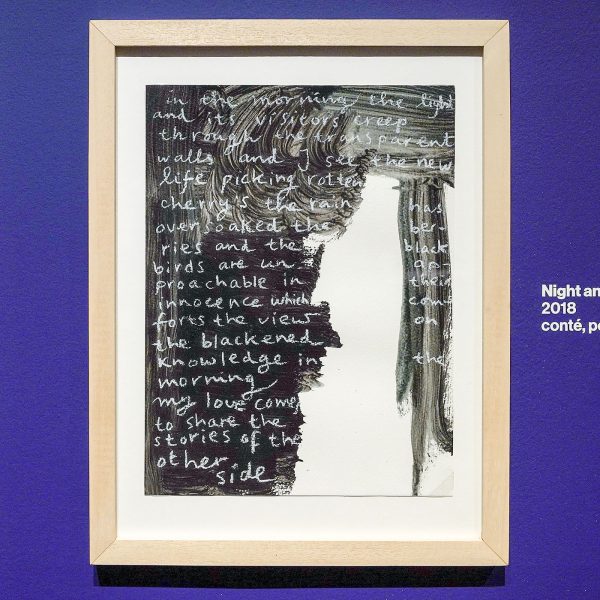 in the morning the light
and its visitors creep
through the transparent
walls and I see the new
life picking rotten
cherry's the rain has
over soaked the ber-
ries and the black
birds are un ap-
proachable in their
innocence which com-
forts the view on
the blackened
knowledge in the
morning
my love comes
to share the
stories of the
other
side
Night an
2018
conté, p